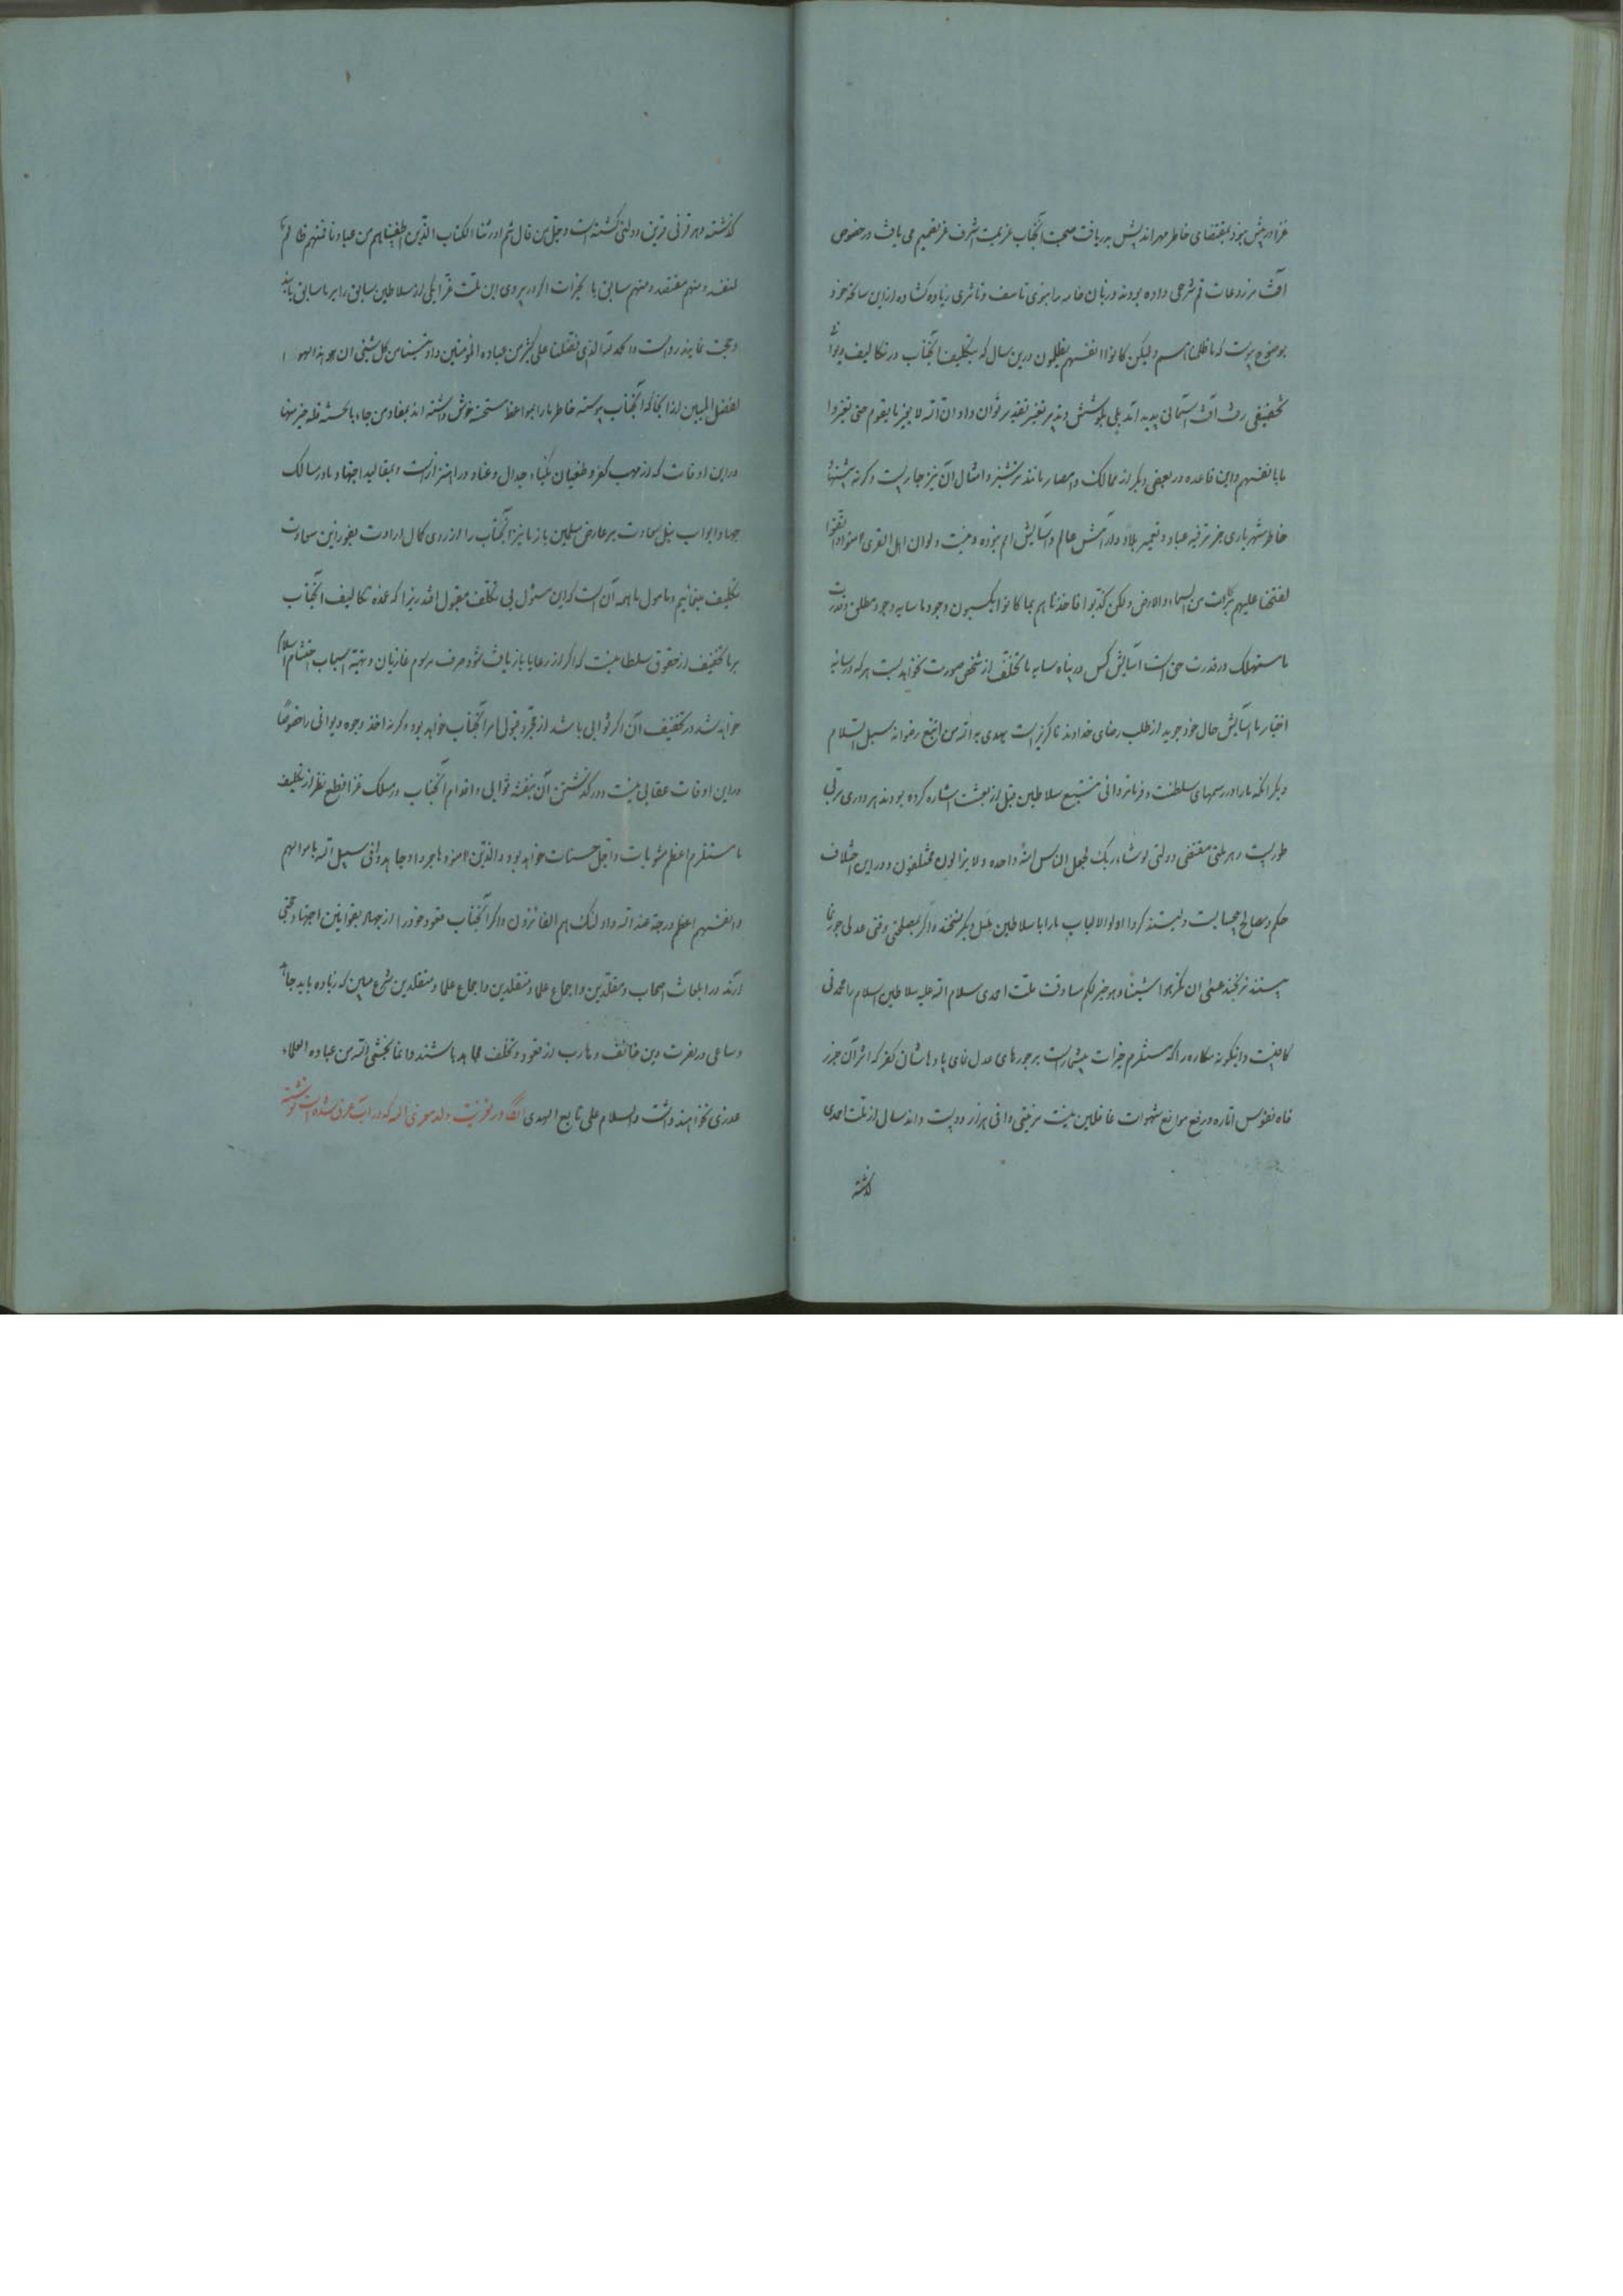 غزا در پیش نبود بمقتضای خاطر مهر اندیش به دریافت صحبت آنجناب عزیمت اشرف عز تقمیم می یافت در خصوص
آفت مزروعات قم شرحی داده بودند و زبان خامه را بنوی تاسف و تاثری زیاده کشاده از این سانحه خود
بوضوح پیوست که ما ظلمناهم ولیکن کانوا انفسهم یظلمون درین سال که بتکلیف آنجناب در تکالیف دیوانی
تخفیفی رفت آفت آسمانی پدید آمد بلی بکوشش و تدبیر تغییر تقدیر نتوان داد ان الله لا یغیر ما بقوم حتی یغیروا
ما بانفسهم و این قاعده در بعضی دیگر از ممالک و امصار مانند ترشیز و امثال آن نیز جاریست و گرنه پیشنهاد
خاطر شهریاری جز ترفیه عباد و تعمیر بلاد و آرامش عالم و آسایش امم نبوده و نیست ولو ان اهل القری آمنوا و اتقوا
لفتحنا علیهم برکات من السماء و الارض ولکن کذبوا فاخذناهم بما کانوا یکسبون وجود ما سایه وجود مطلق و قدرت
ما مستهلک در قدرت حق است آسایش کس در پناه سایه با تخلف از شخص صورت نخواهد بست هر که در سایه
اختیار ما آسایش حال خود جوید از طلب رضای خداوند ناگزیر است یهدی به الله من اتبع رضوانه سبل السلام
دیگر آنکه ما را در رسمهای سلطنت و فرمانروائی بتتبع سلاطین قبل از بعثت اشاره کرده بودند هر دوری مرتی
طوریست و هر ملتی مقتضی دولتی لو شاء ربک لجعل الناس امة واحدة ولا یزالون مختلفون و در این اختلاف
حکم و مصالح بحسابست و لیتذکر اولوا الالباب ما را با سلاطین ملل دیگر نسنجند و اگر بمصلحتی وقتی عدلی جور نما
بینند نرنجند عسی ان تکرهوا شیئا و هو خیر لکم مساوقت ملت احمدی سلام الله علیه سلاطین اسلام را محمدتی
کافیست و اینگونه مکاره را که مستلزم خیرات بیشمار است بر جورهای عدل نمای پادشاهان کفر که اثر آن جز ر
فاه نفوس اماره و رفع موانع شهوات غافلین نیست مزیتی وافی هزار و دویست و اند سال از ملت احمدی
گذشته
گذشته و هر قرنی قرین دولتی گشته است و جل من قال ثم اورثنا الکتاب الذین اصطفیناهم من عبادنا فمنهم ظالم
لنفسه و منهم مقتصد و منهم سابق بالخیرات اگر در پیروی این ملت غرا یکی از سلاطین سابق را بر ما سابق یابند
و حجت نمایند رواست و الحمد لله الذی فضلنا علی کثیر من عباده المؤمنین و اوتینا من کل شیئ ان هذا لهو
الفضل المبین از آنجا که آنجناب پیوسته خاطر ما را بمواعظ مستحسنه خوش داشته اند بمفاد من جاء بالحسنة فله خیر منها
در این اوقات که از مهب کفر و طغیان نکباء جدال و عناد در اهتزاز است و بمقالید اجتهاد ما در مسالک
جهاد ابواب نیل سعادت بر معارض مسلمین باز ما نیز آنجناب را از روی کمال ارادت بفوز این سعادت
تکلیف مینمائیم و مامول ما همه آن است که این مسئول بی تکلف مقبول افتد زیرا که عمده تکالیف آنجناب
بر ما تخفیف از حقوق سلطانیست که اگر از رعایا بازیافت شود صرف مرسوم غازیان و تهیه اسباب احتشام اسلام
خواهد شد در تخفیف آن اگر ثوابی باشد از مجرد قبول امر آنجناب خواهد بود و گرنه اخذ وجوه دیوانی را خصوصا
در این اوقات عقابی نیست و در گذشتن آن بنفسه ثوابی و اقدام آنجناب در مسلک غزا قطع نظر از تکلیف
ما مستلزم اعظم مثوبات و اجل حسنات خواهد بود و الذین آمنوا و هاجروا و جاهدوا فی سبیل الله باموالهم
و انفسهم اعظم درجة عند الله و اولئک هم الفائزون و اگر آنجناب قعود خود را از جهاد بقوانین اجتهاد حجتی
آرند در ابلغات اصحاب و مقلدین و اجماع علماء و متقلدین شرع مبین که زیاده باید جاهد
و ساعی در نصرت دین خائف و هارب از قعود و تخلف مجاهد باشند و انما یخشی الله من عباده العلماء
عذری نخواهند داشت والسلام علی تابع الهدی